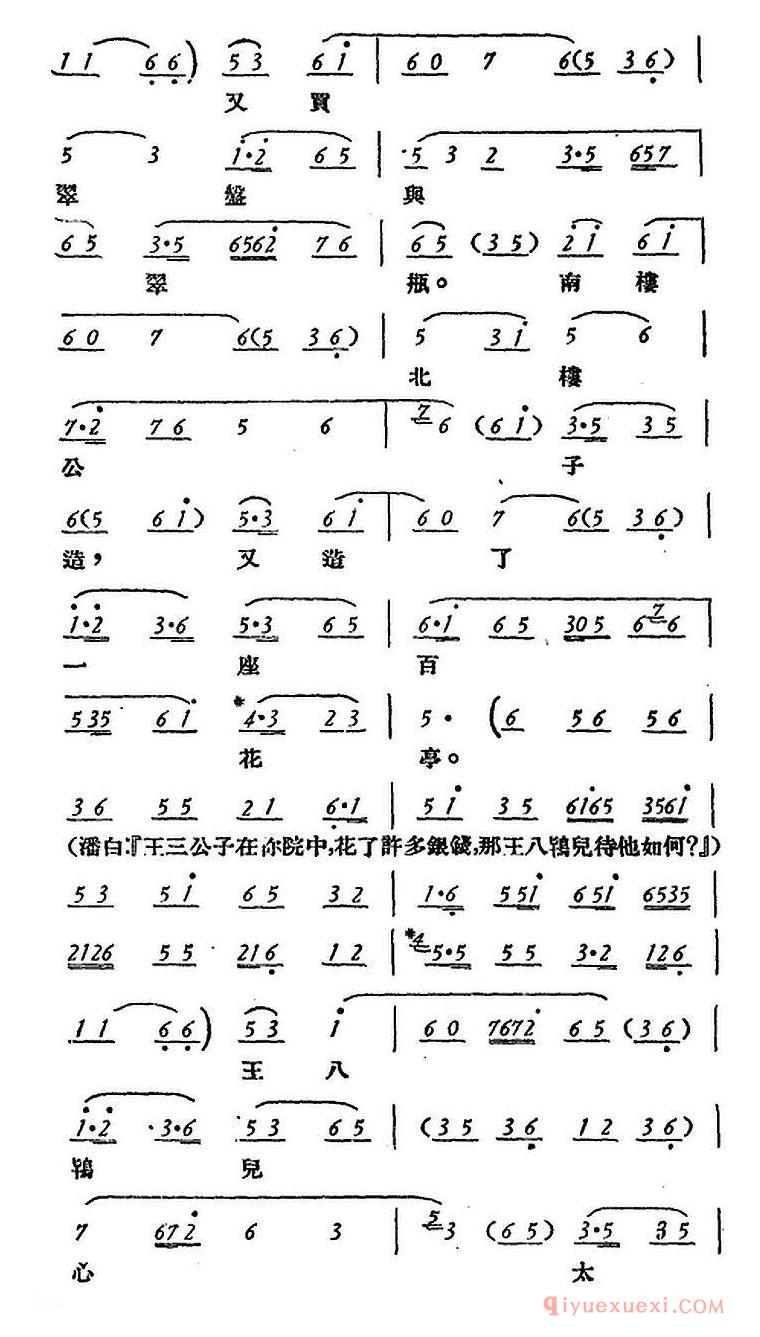 1 1 6 6 ) 5 3 6 i | 6 0 7 6 ( 5 3 6 ) |
又 買
5 3 i · 2 6 5 | · 5 3 2 3 · 5 6 5 7
翠 盤 與
6 5 3 · 5 6 5 6 2 7 6 | 6 5 ( 3 5 ) 2 i 6 i
翠 瓶。 南 樓
6 0 7 6 ( 5 3 6 ) | 5 3 i 5 6 |
北 樓
7 · 2 7 6 5 6 | 7 6 ( 6 i ) 3 · 5 3 5 |
公 子
6 ( 5 6 i ) 5 · 3 6 i | 6 0 7 6 ( 5 3 6 ) |
造, 又 造 了
i · 2 3 · 6 5 · 3 6 5 | 6 · i 6 5 3 0 5 6 7 6
一 座 百
5 3 5 6 i # 4 · 3 2 3 | 5 · ( 6 5 6 5 6 |
花 亭。
3 6 5 5 2 1 6 · 1 | 5 i 3 5 6 i 6 5 3 5 6 i |
(潘白:『王三公子在你院中,花了許多銀錢,那王八鴇兒待他如何?』)
5 3 5 i 6 5 3 2 | 1 · 6 5 5 i 6 5 i 6 5 3 5 |
2 1 2 6 5 5 2 1 6 1 2 | # 4 5 · 5 5 5 3 · 2 1 2 6 |
1 1 6 6 ) 5 3 i | 6 0 7 6 7 2 6 5 ( 3 6 ) |
王 八
i · 2 · 3 · 6 · 5 3 6 5 | ( 3 5 3 6 1 2 3 6 ) |
鴇 兒
7 6 7 2 6 3 | 5 3 ( 6 5 ) 3 · 5 3 5 |
心 太
qiyuexuexi.com